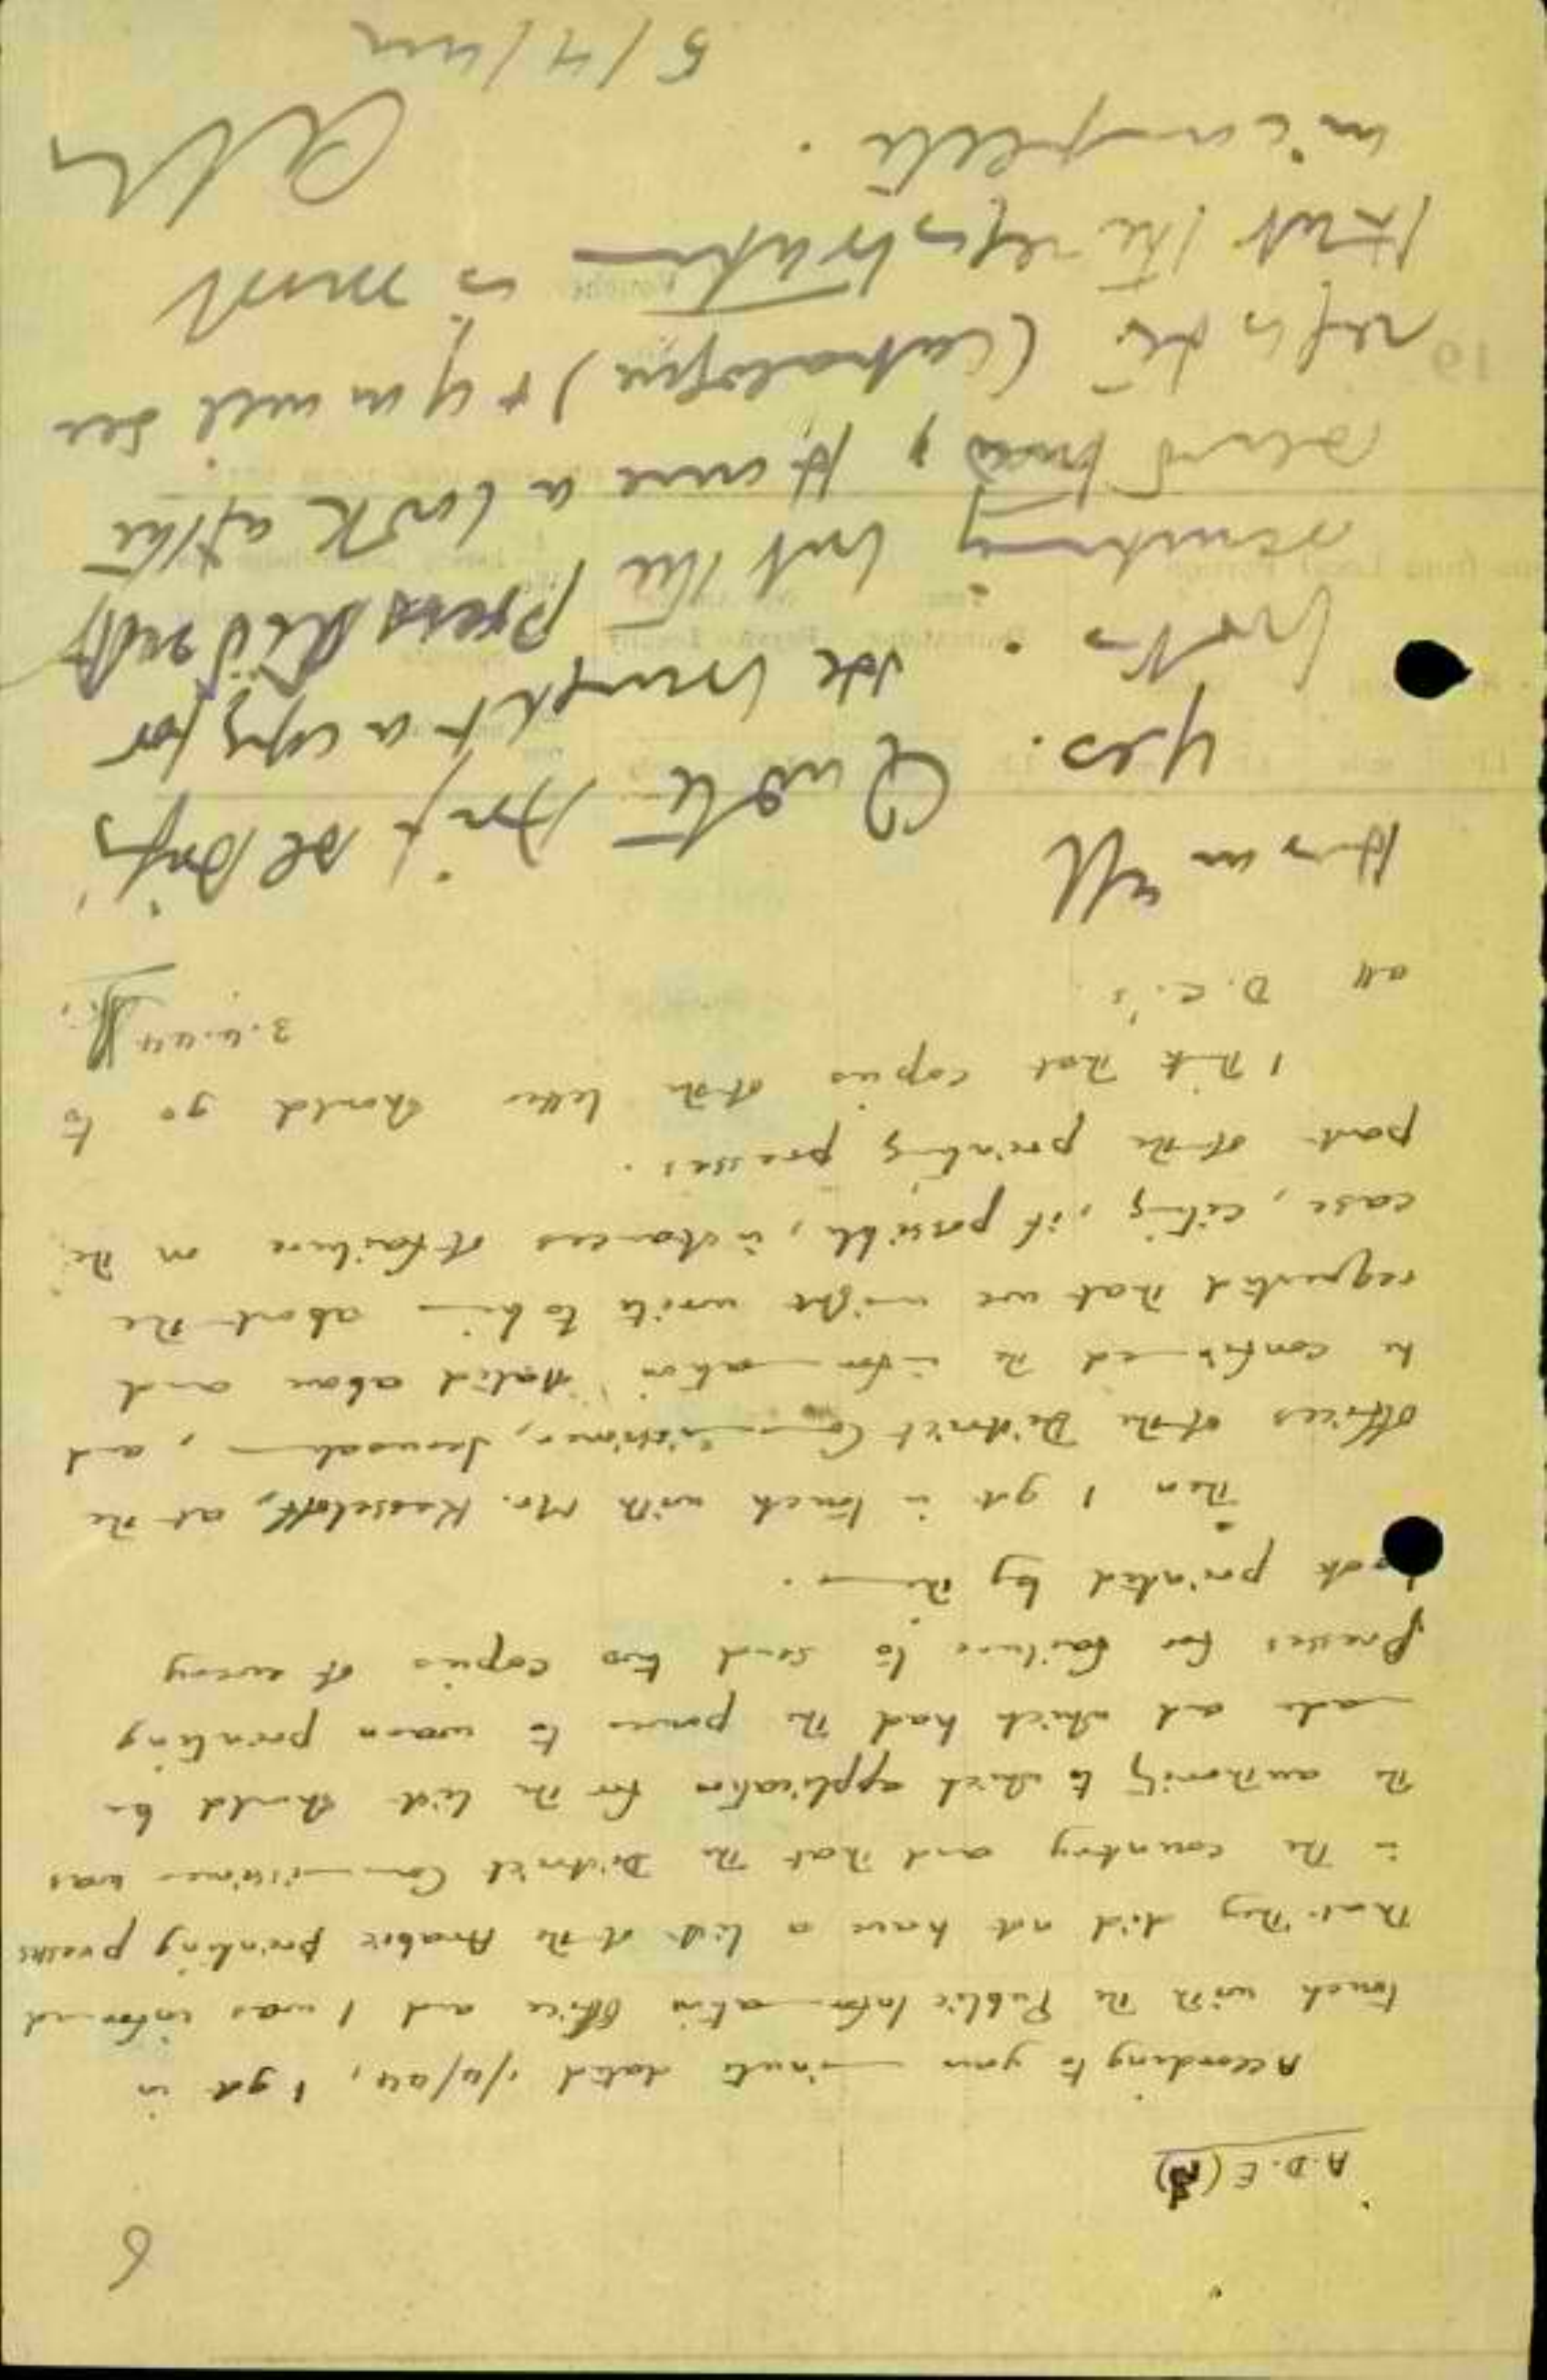 6
A.D.E (3)
According to your minute dated 1/4/44, I got in
touch with the Public Information Office and I was informed
that they did not have a list of the Arabic printing presses
in the country and that the District Commissioner was
the authority to which application for the list should be
made and which had the power to warn printing
presses for failure to send two copies of every
book printed by them.
Then I got in touch with Mr. Kesseloff, at the
offices of the District Commissioner, Jerusalem, and
he confirmed the information stated above and
requested that we might write to him about the
case, citing, if possible, instances of failure on the
part of the printing presses.
I think that copies of the letter should go to
all D.C.'s.
3.4.44
Yes. Quote
He brought a copy for
but the press did not
send two, Have a look at the
register (Central office) & you will see
that the registration is most
incomplete.
5/4/44